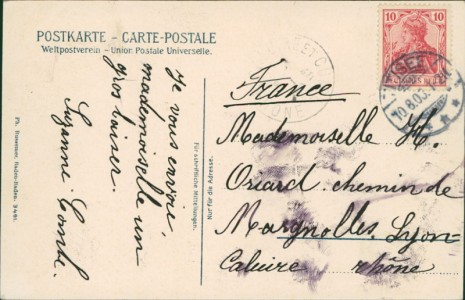 POSTKARTE - CARTE-POSTALE
Weltpostverein - Union Postale Universelle.
Je vous envoie
mademoiselle un
gros baiser.
Suzanne Comte.
Für schriftliche Mitteilungen.
Nur für die Adresse.
10 10
France
Mademoiselle H.
Oriard chemin de
Margnolles. Lyon-
Caluire rhône